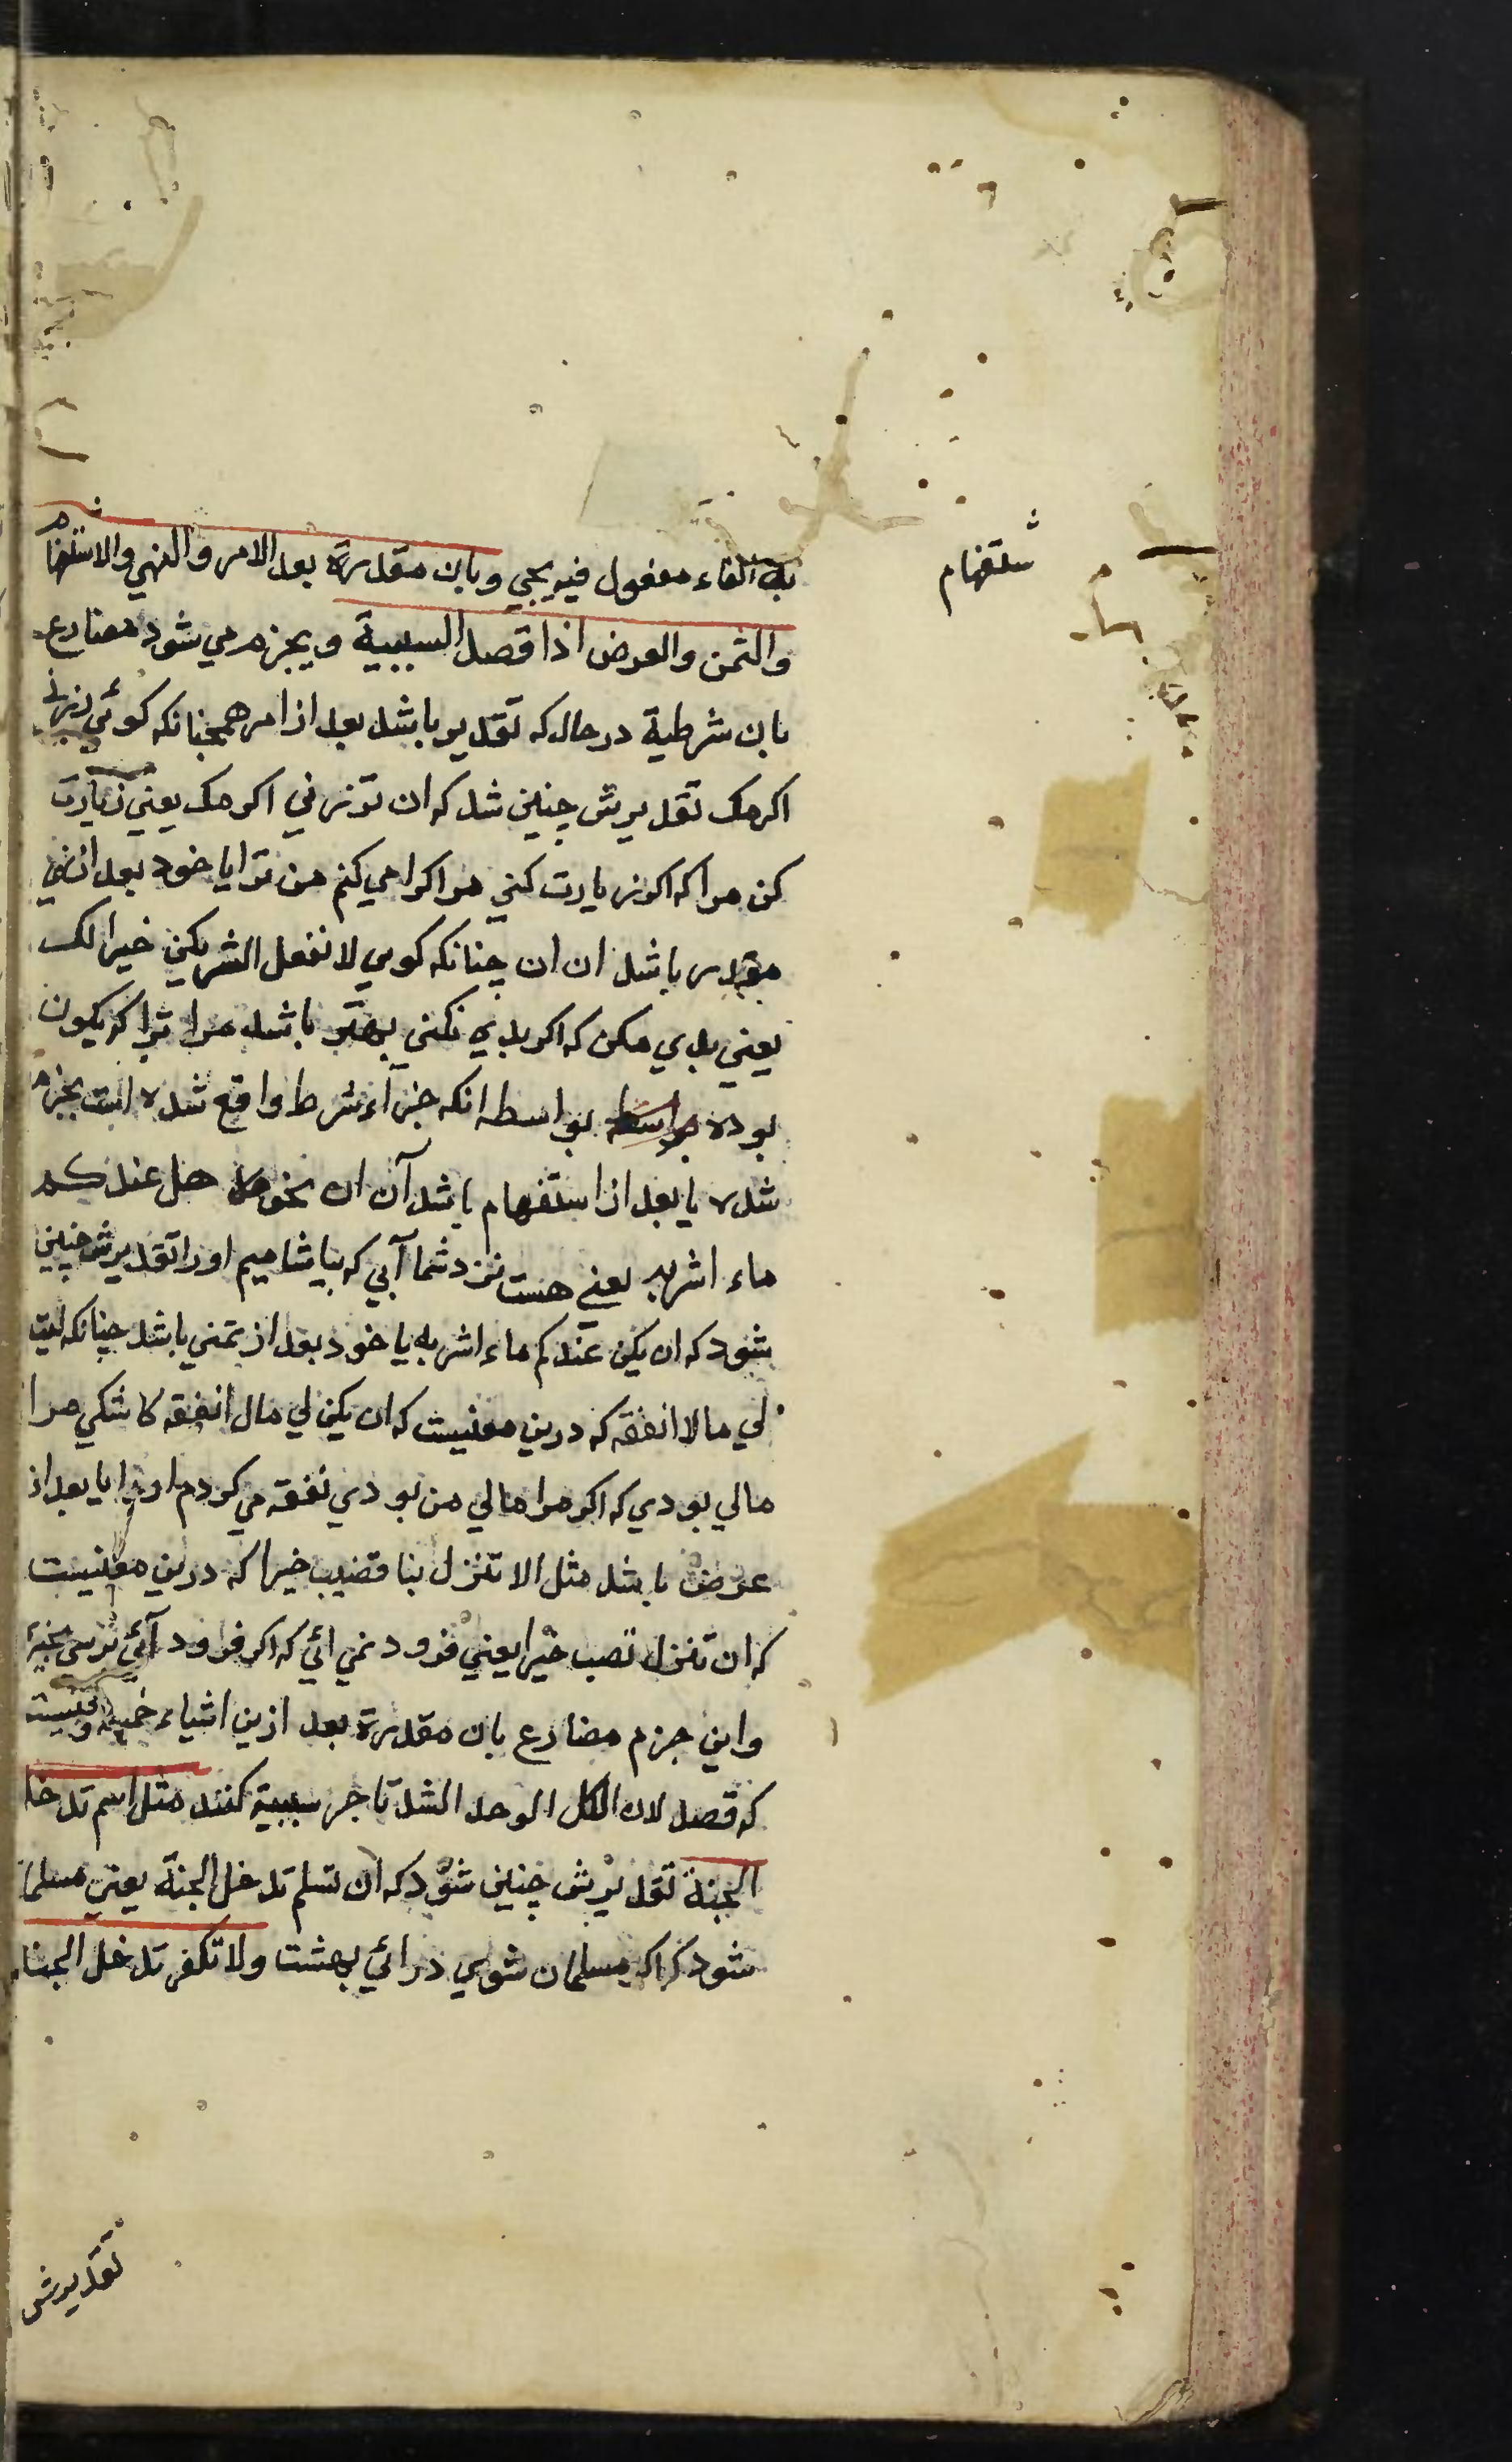 به الفاء مفعول فيه يجي وبان مقدرة بعد الامر والنهي والاستفهام
ستفهام
والتمن والعرض اذا قصد السببية ويجزم مي شود مضارع
بان شرطية در حال كه تقدير باشد بعد از امر همچنانكه كوئي زرني
اكرمك تقديرش چنين شد كه ان تزرني اكرمك يعني زيارت
كن مرا كه اكر زيارت كني مرا اكرامي كنم من ترا يا خود بعد از نهي
مقدر باشد ان ان چنانكه كوي لا تفعل الشر يكن خيرا لك
يعني بدي مكن كه اكر بدي نكني بهتر باشد مرا ترا كه يكون
بوده بواسطه بواسطه انكه جزآء شرط واقع شده است بجزم
شده يا بعد از استفهام باشد آن ان نحو هل عندكم
ماء اشربه يعني هست نزد شما آبي كه بياشاميم اورا تقديرش چنين
شود كه ان يكن عندكم ماء اشربه يا خود بعد از تمني باشد چنانكه ليت
لي مالا انفقه كه درين معنيست كه ان يكن لي مال انفقه كاشكي مرا
مالي بودي كه اكر مرا مالي من بودي نفقه مي كردم اورا يا بعد از
عرض باشد مثل الا تنزل بنا فتصيب خيرا كه درين معنيست
كه ان تنزل تصب خيرا يعني فرود نمي ائي كه اكر فرود آئي برسي بخير
واين جزم مضارع بان مقدرة بعد ازين اشياء خمسه وقتيست
كه قصد لان الكل الوحد الشد تاجر سببية كنند مثل اسم تدخل
الجنة تقديرش چنين شود كه ان تسلم تدخل الجنة يعني مسلمان
شود كه اكر مسلمان شوي درائي بهشت ولا تكفر تدخل الجنة
تقديرش